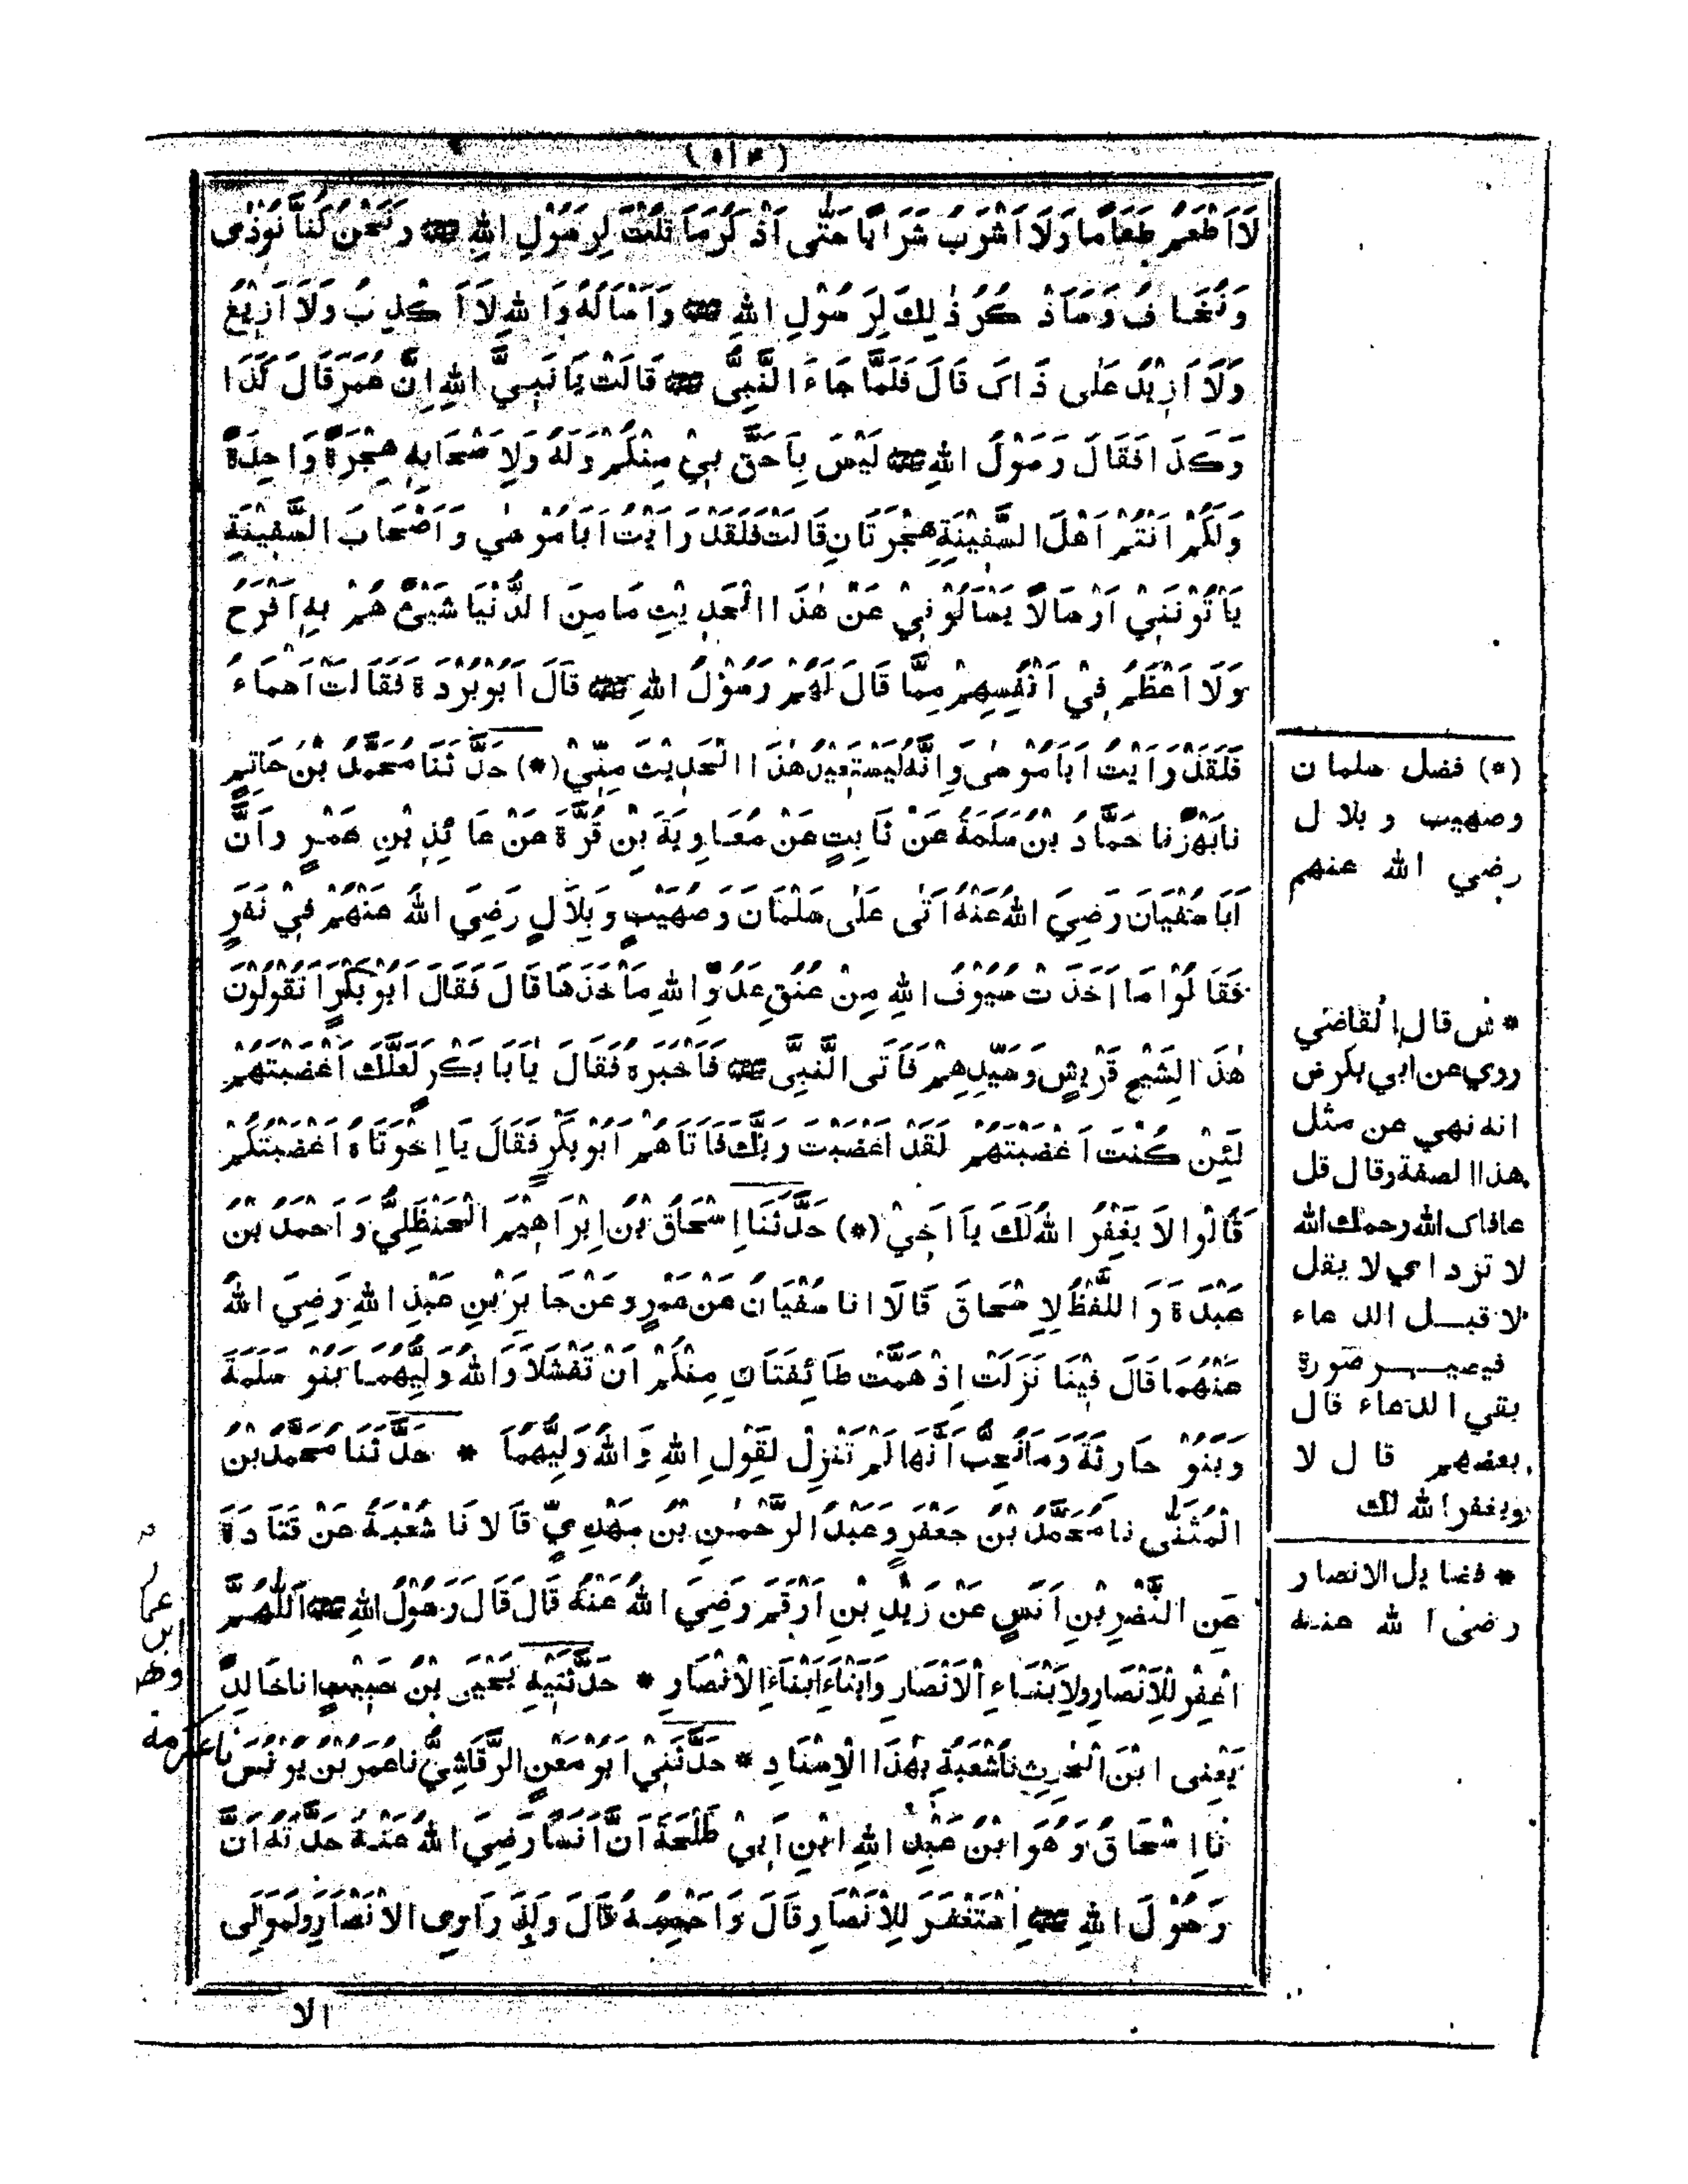 (٥١٤)
لَا اَطْعَمُ طَعَامًا وَلَا اَشْرَبُ شَرَابًا حَتّٰى اَذْكُرَ مَا قُلْتَ لِرَسُوْلِ اللهِ ﷺ وَنَحْنُ كُنَّا نُوْذٰى
وَنُخَافُ وَسَاَذْكُرُ ذٰلِكَ لِرَسُوْلِ اللهِ ﷺ وَاَسْاَلُهُ وَاللهِ لَا اَكْذِبُ وَلَا اَزِيْغُ
وَلَا اَزِيْدُ عَلٰى ذَاكَ قَالَ فَلَمَّا جَاءَ النَّبِىُّ ﷺ قَالَتْ يَا نَبِىَّ اللهِ اِنَّ عُمَرَ قَالَ كَذَا
وَكَذَا فَقَالَ رَسُوْلُ اللهِ ﷺ لَيْسَ بِاَحَقَّ بِيْ مِنْكُمْ وَلَهُ وَلِاَصْحَابِهِ هِجْرَةٌ وَاحِدَةٌ
وَلَكُمْ اَنْتُمْ اَهْلَ السَّفِيْنَةِ هِجْرَتَانِ قَالَتْ فَلَقَدْ رَاَيْتُ اَبَا مُوْسٰي وَاَصْحَابَ السَّفِيْنَةِ
يَأْتُوْنَنِيْ اَرْسَالًا يَسْاَلُوْنِيْ عَنْ هٰذَا الْحَدِيْثِ مَا مِنَ الدُّنْيَا شَيْئٌ هُمْ بِهِ اَفْرَحُ
وَلَا اَعْظَمُ فِيْ اَنْفُسِهِمْ مِمَّا قَالَ لَهُمْ رَسُوْلُ اللهِ ﷺ قَالَ اَبُوْ بُرْدَةَ فَقَالَتْ اَسْمَاءُ
فَلَقَدْ رَاَيْتُ اَبَا مُوْسٰى وَاِنَّهُ لَيَسْتَعِيْدُ هٰذَا الْحَدِيْثَ مِنِّيْ (*) حَدَّثَنَا مُحَمَّدُ بْنُ حَاتِمٍ
نَا بَهْزٌ نَا حَمَّادُ بْنُ سَلَمَةَ عَنْ ثَابِتٍ عَنْ مُعَاوِيَةَ بْنِ قُرَّةَ عَنْ عَائِذِ بْنِ عَمْرٍو اَنَّ
اَبَا سُفْيَانَ رَضِيَ اللهُ عَنْهُ اَتٰى عَلٰى سَلْمَانَ وَصُهَيْبٍ وَبِلَالٍ رَضِيَ اللهُ عَنْهُمْ فِيْ نَفَرٍ
فَقَالُوْا مَا اَخَذَتْ سُيُوْفُ اللهِ مِنْ عُنُقِ عَدُوِّ اللهِ مَأْخَذَهَا قَالَ فَقَالَ اَبُوْ بَكْرٍ اَتَقُوْلُوْنَ
هٰذَا لِشَيْخِ قُرَيْشٍ وَسَيِّدِهِمْ فَاَتَى النَّبِىَّ ﷺ فَاَخْبَرَهُ فَقَالَ يَا اَبَا بَكْرٍ لَعَلَّكَ اَغْضَبْتَهُمْ
لَئِنْ كُنْتَ اَغْضَبْتَهُمْ لَقَدْ اَغْضَبْتَ رَبَّكَ فَاَتَاهُمْ اَبُوْ بَكْرٍ فَقَالَ يَا اِخْوَتَاهُ اَغْضَبْتُكُمْ
قَالُوْا لَا يَغْفِرُ اللهُ لَكَ يَا اَخِيْ (*) حَدَّثَنَا اِسْحَاقُ بْنُ اِبْرَاهِيْمَ الْحَنْظَلِيُّ وَاَحْمَدُ بْنُ
عَبْدَةَ وَاللَّفْظُ لِاِسْحَاقَ قَالَا انا سُفْيَانُ عَنْ عَمْرٍو عَنْ جَابِرِ بْنِ عَبْدِ اللهِ رَضِيَ اللهُ
عَنْهُمَا قَالَ فِيْنَا نَزَلَتْ اِذْ هَمَّتْ طَائِفَتَانِ مِنْكُمْ اَنْ تَفْشَلَا وَاللهُ وَلِيُّهُمَا بَنُوْ سَلِمَةَ
وَبَنُوْ حَارِثَةَ وَمَا نُحِبُّ اَنَّهَا لَمْ تَنْزِلْ لِقَوْلِ اللهِ وَاللهُ وَلِيُّهُمَا * حَدَّثَنَا مُحَمَّدُ بْنُ
الْمُثَنّٰى نا مُحَمَّدُ بْنُ جَعْفَرٍ وَعَبْدُ الرَّحْمٰنِ بْنُ مَهْدِيٍّ قَالَا نَا شُعْبَةُ عَنْ قَتَادَةَ
عَنِ النَّضْرِ بْنِ اَنَسٍ عَنْ زَيْدِ بْنِ اَرْقَمَ رَضِيَ اللهُ عَنْهُ قَالَ قَالَ رَسُوْلُ اللهِ ﷺ اَللّٰهُمَّ
اغْفِرْ لِلْاَنْصَارِ وَلِاَبْنَاءِ الْاَنْصَارِ وَاَبْنَاءِ اَبْنَاءِ الْاَنْصَارِ * حَدَّثَنِيْهِ يَحْيَى بْنُ حَبِيْبٍ انا خَالِدٌ
يَعْنِى ابْنَ الْحٰرِثِ نَا شُعْبَةُ بِهٰذَا الْاِسْنَادِ * حَدَّثَنِيْ اَبُوْ مَعْنٍ الرَّقَاشِيُّ نا عُمَرُ بْنُ يُوْنُسَ نا عكرمة
نَا اِسْحَاقُ وَهُوَ ابْنُ عَبْدِ اللهِ ابْنِ اَبِيْ طَلْحَةَ اَنَّ اَنَسًا رَضِيَ اللهُ عَنْهُ حَدَّثَهُ اَنَّ
رَسُوْلَ اللهِ ﷺ اِسْتَغْفَرَ لِلْاَنْصَارِ قَالَ وَاَحْسِبُهُ قَالَ وَلِذَرَارِى الْاَنْصَارِ وَلِمَوَالِى
الا
(*) فضل سلمان
وصهيب وبلال
رضي الله عنهم
* ش قال القاضي
روي عن ابي بكر رض
انه نهي عن مثل
هذا الصفة وقال قل
عافاك الله رحمك الله
لا تزد اي لا يقل
لا قبل الدعاء
فيصير صورة
بقي الدعاء قال
بعضهم قال لا
ويغفر الله لك
* فضايل الانصار
رضى الله عنه